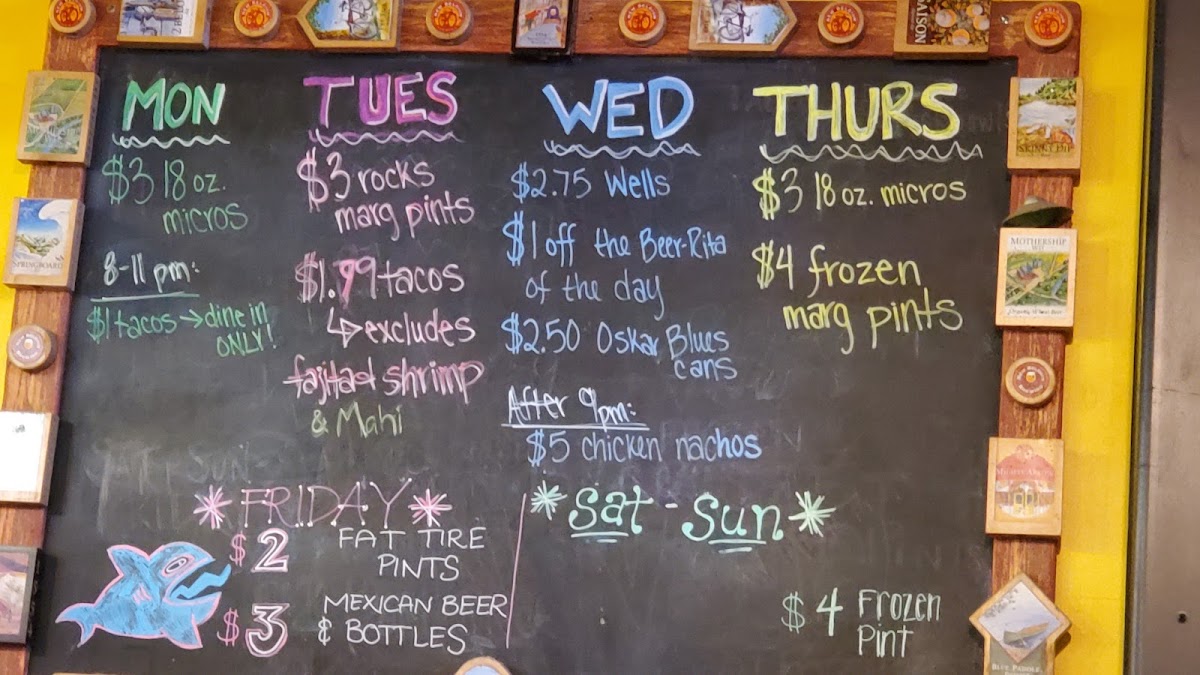 MON
$3 18 oz.
micros
8-11 pm:
$1 tacos → dine in
ONLY!
TUES
$3 rocks
marg pints
$1.99 tacos
↳ excludes
fajita & shrimp
& Mahi
WED
$2.75 Wells
$1 off the Beer-Rita
of the day
$2.50 Oskar Blues
cans
After 9pm:
$5 chicken nachos
THURS
$3 18 oz. micros
$4 frozen
marg pints
*FRIDAY*
$2 FAT TIRE
PINTS
$3 MEXICAN BEER
& BOTTLES
*Sat - Sun*
$4 Frozen
Pint
SPRINGBOARD
SAISON
SKINNY DIP
MOTHERSHIP
WIT
BLUE PADDLE